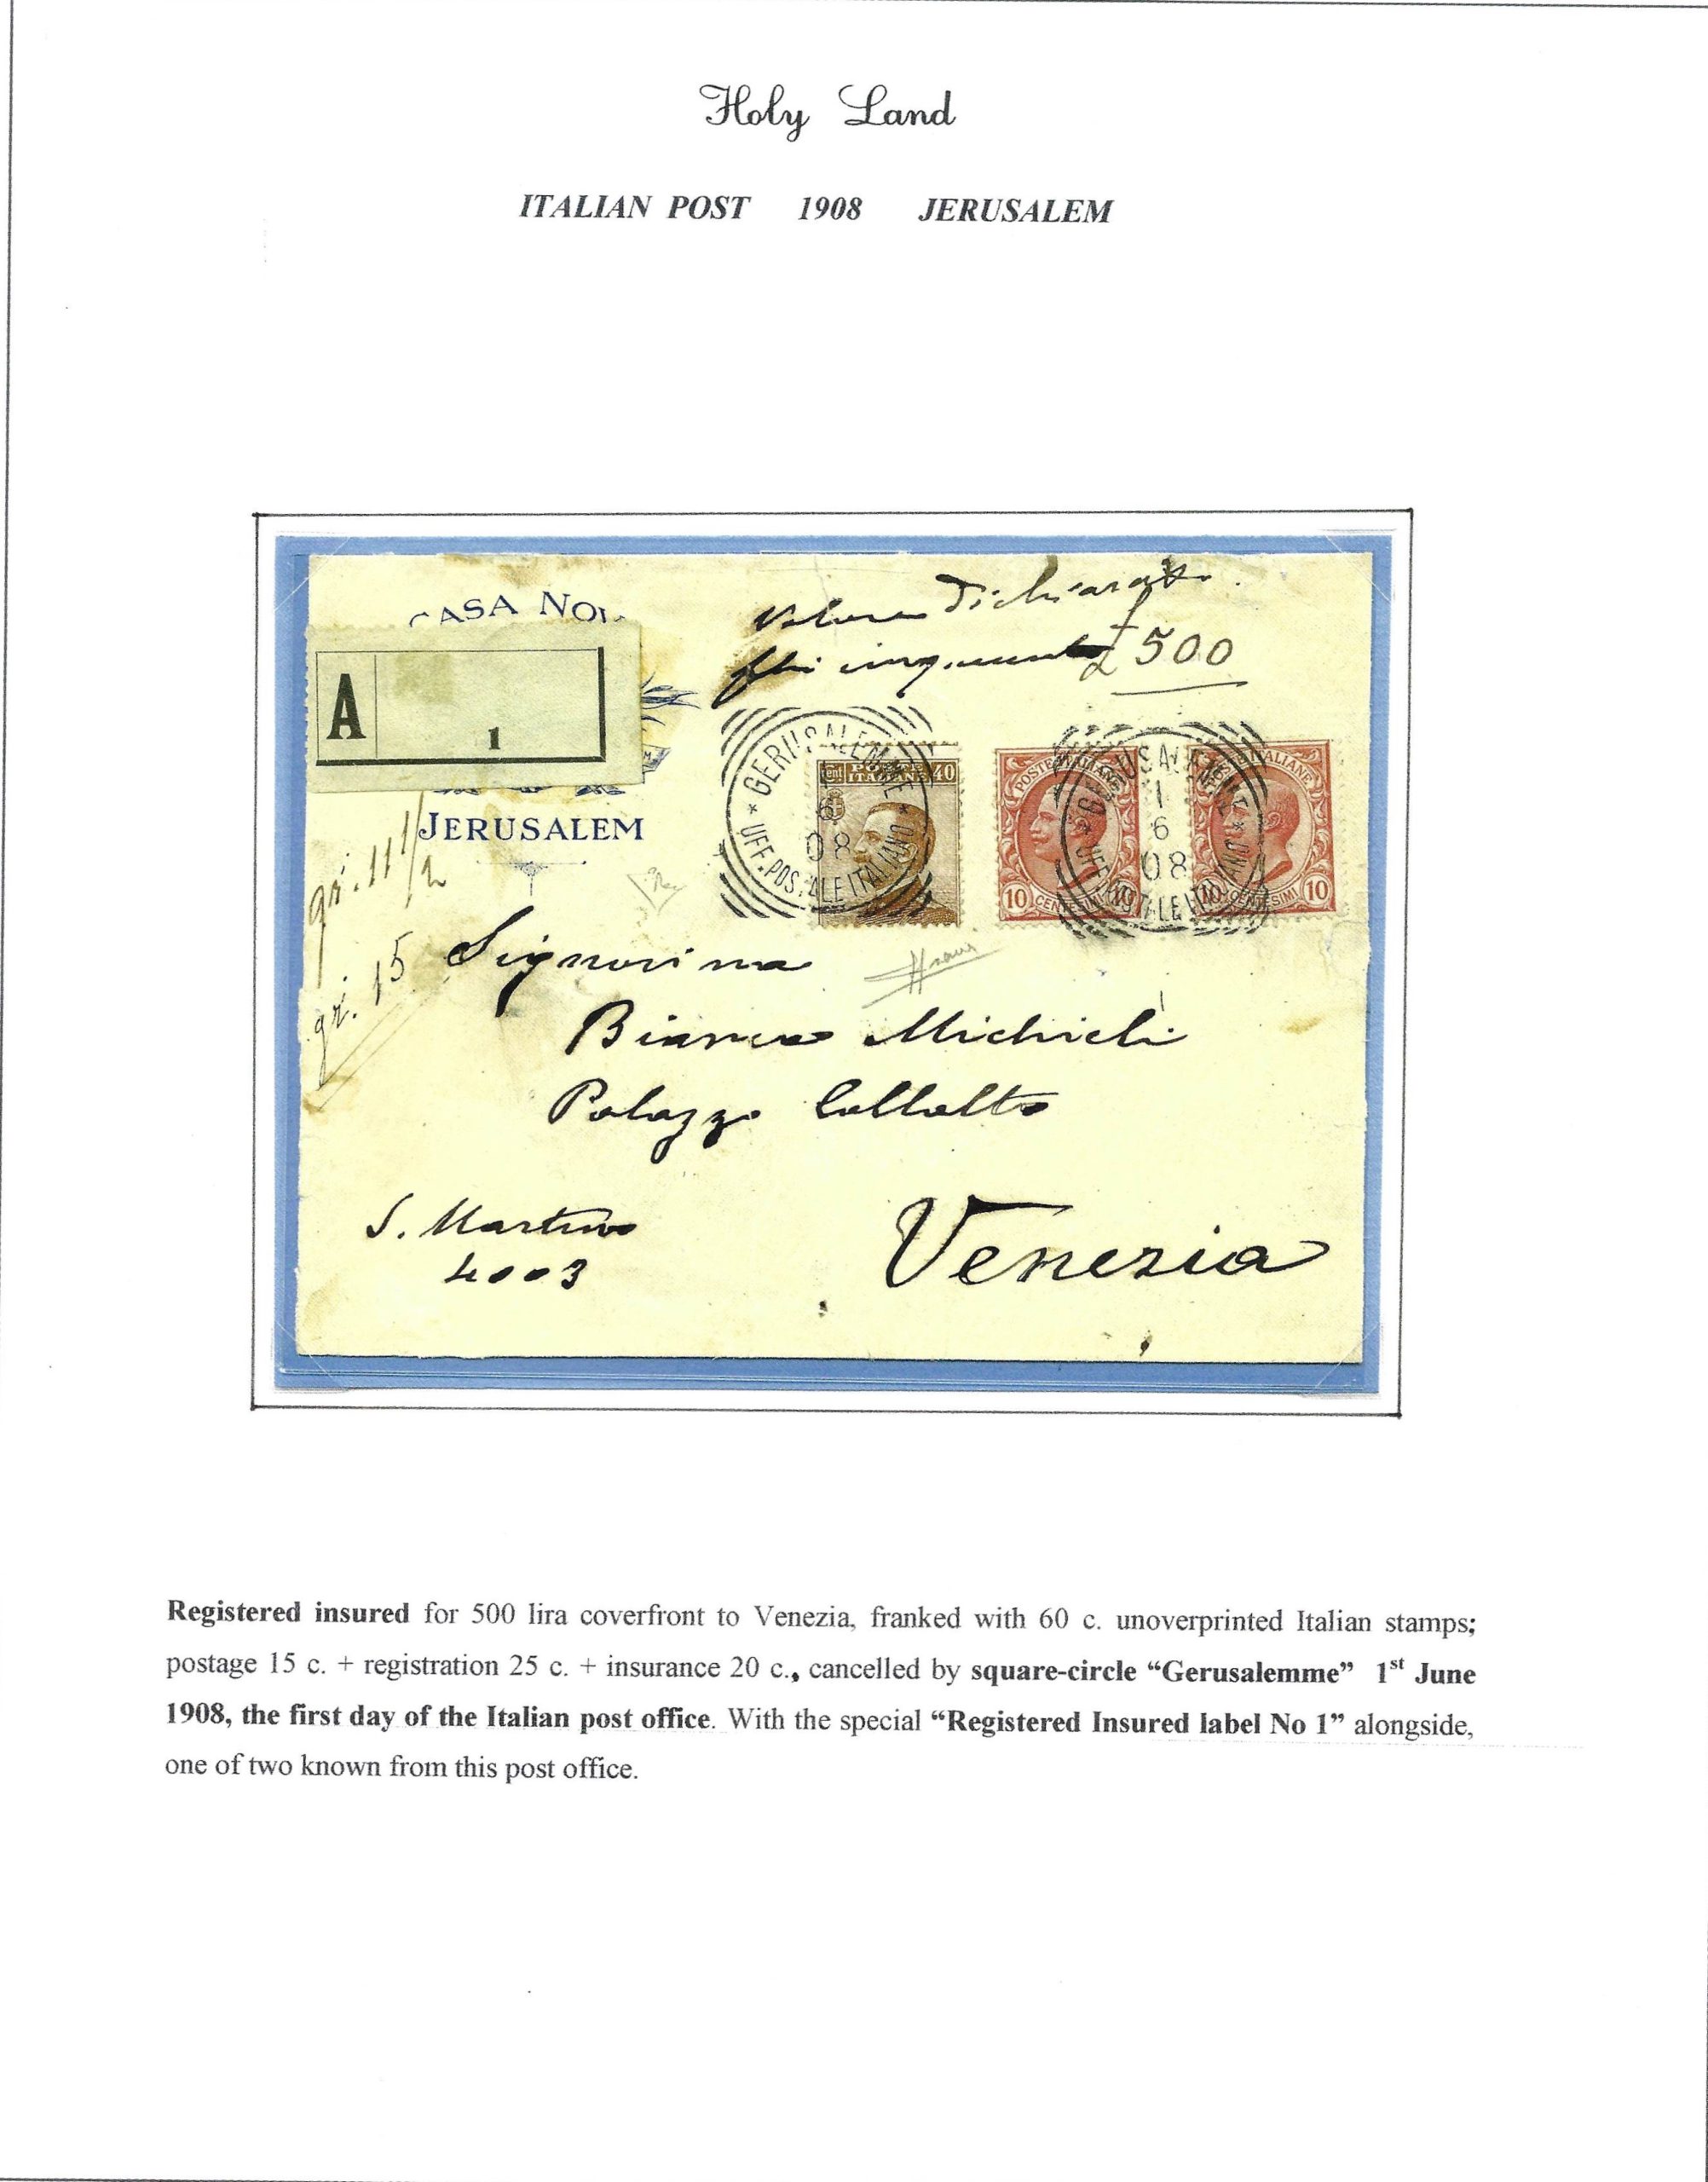 Holy Land
ITALIAN POST 1908 JERUSALEM
CASA NOV
Valore Dichiarato
£ 500
A
1
JERUSALEM
gr. 11 1/2
gr. 15
GERUSALEMME
6
08
* UFF. POSTALE ITALIANO *
Cent POSTE ITALIANE 40
GERUSALEMME
1
6
08
* UFF. POSTALE ITALIANO *
POSTE ITALIANE
10 CENTESIMI 10
POSTE ITALIANE
10 CENTESIMI 10
Signorina
Bianca Michieli
Palazzo Collalto
S. Martino
4003
Venezia
Registered insured for 500 lira coverfront to Venezia, franked with 60 c. unoverprinted Italian stamps;
postage 15 c. + registration 25 c. + insurance 20 c., cancelled by square-circle “Gerusalemme” 1st June
1908, the first day of the Italian post office. With the special “Registered Insured label No 1” alongside,
one of two known from this post office.